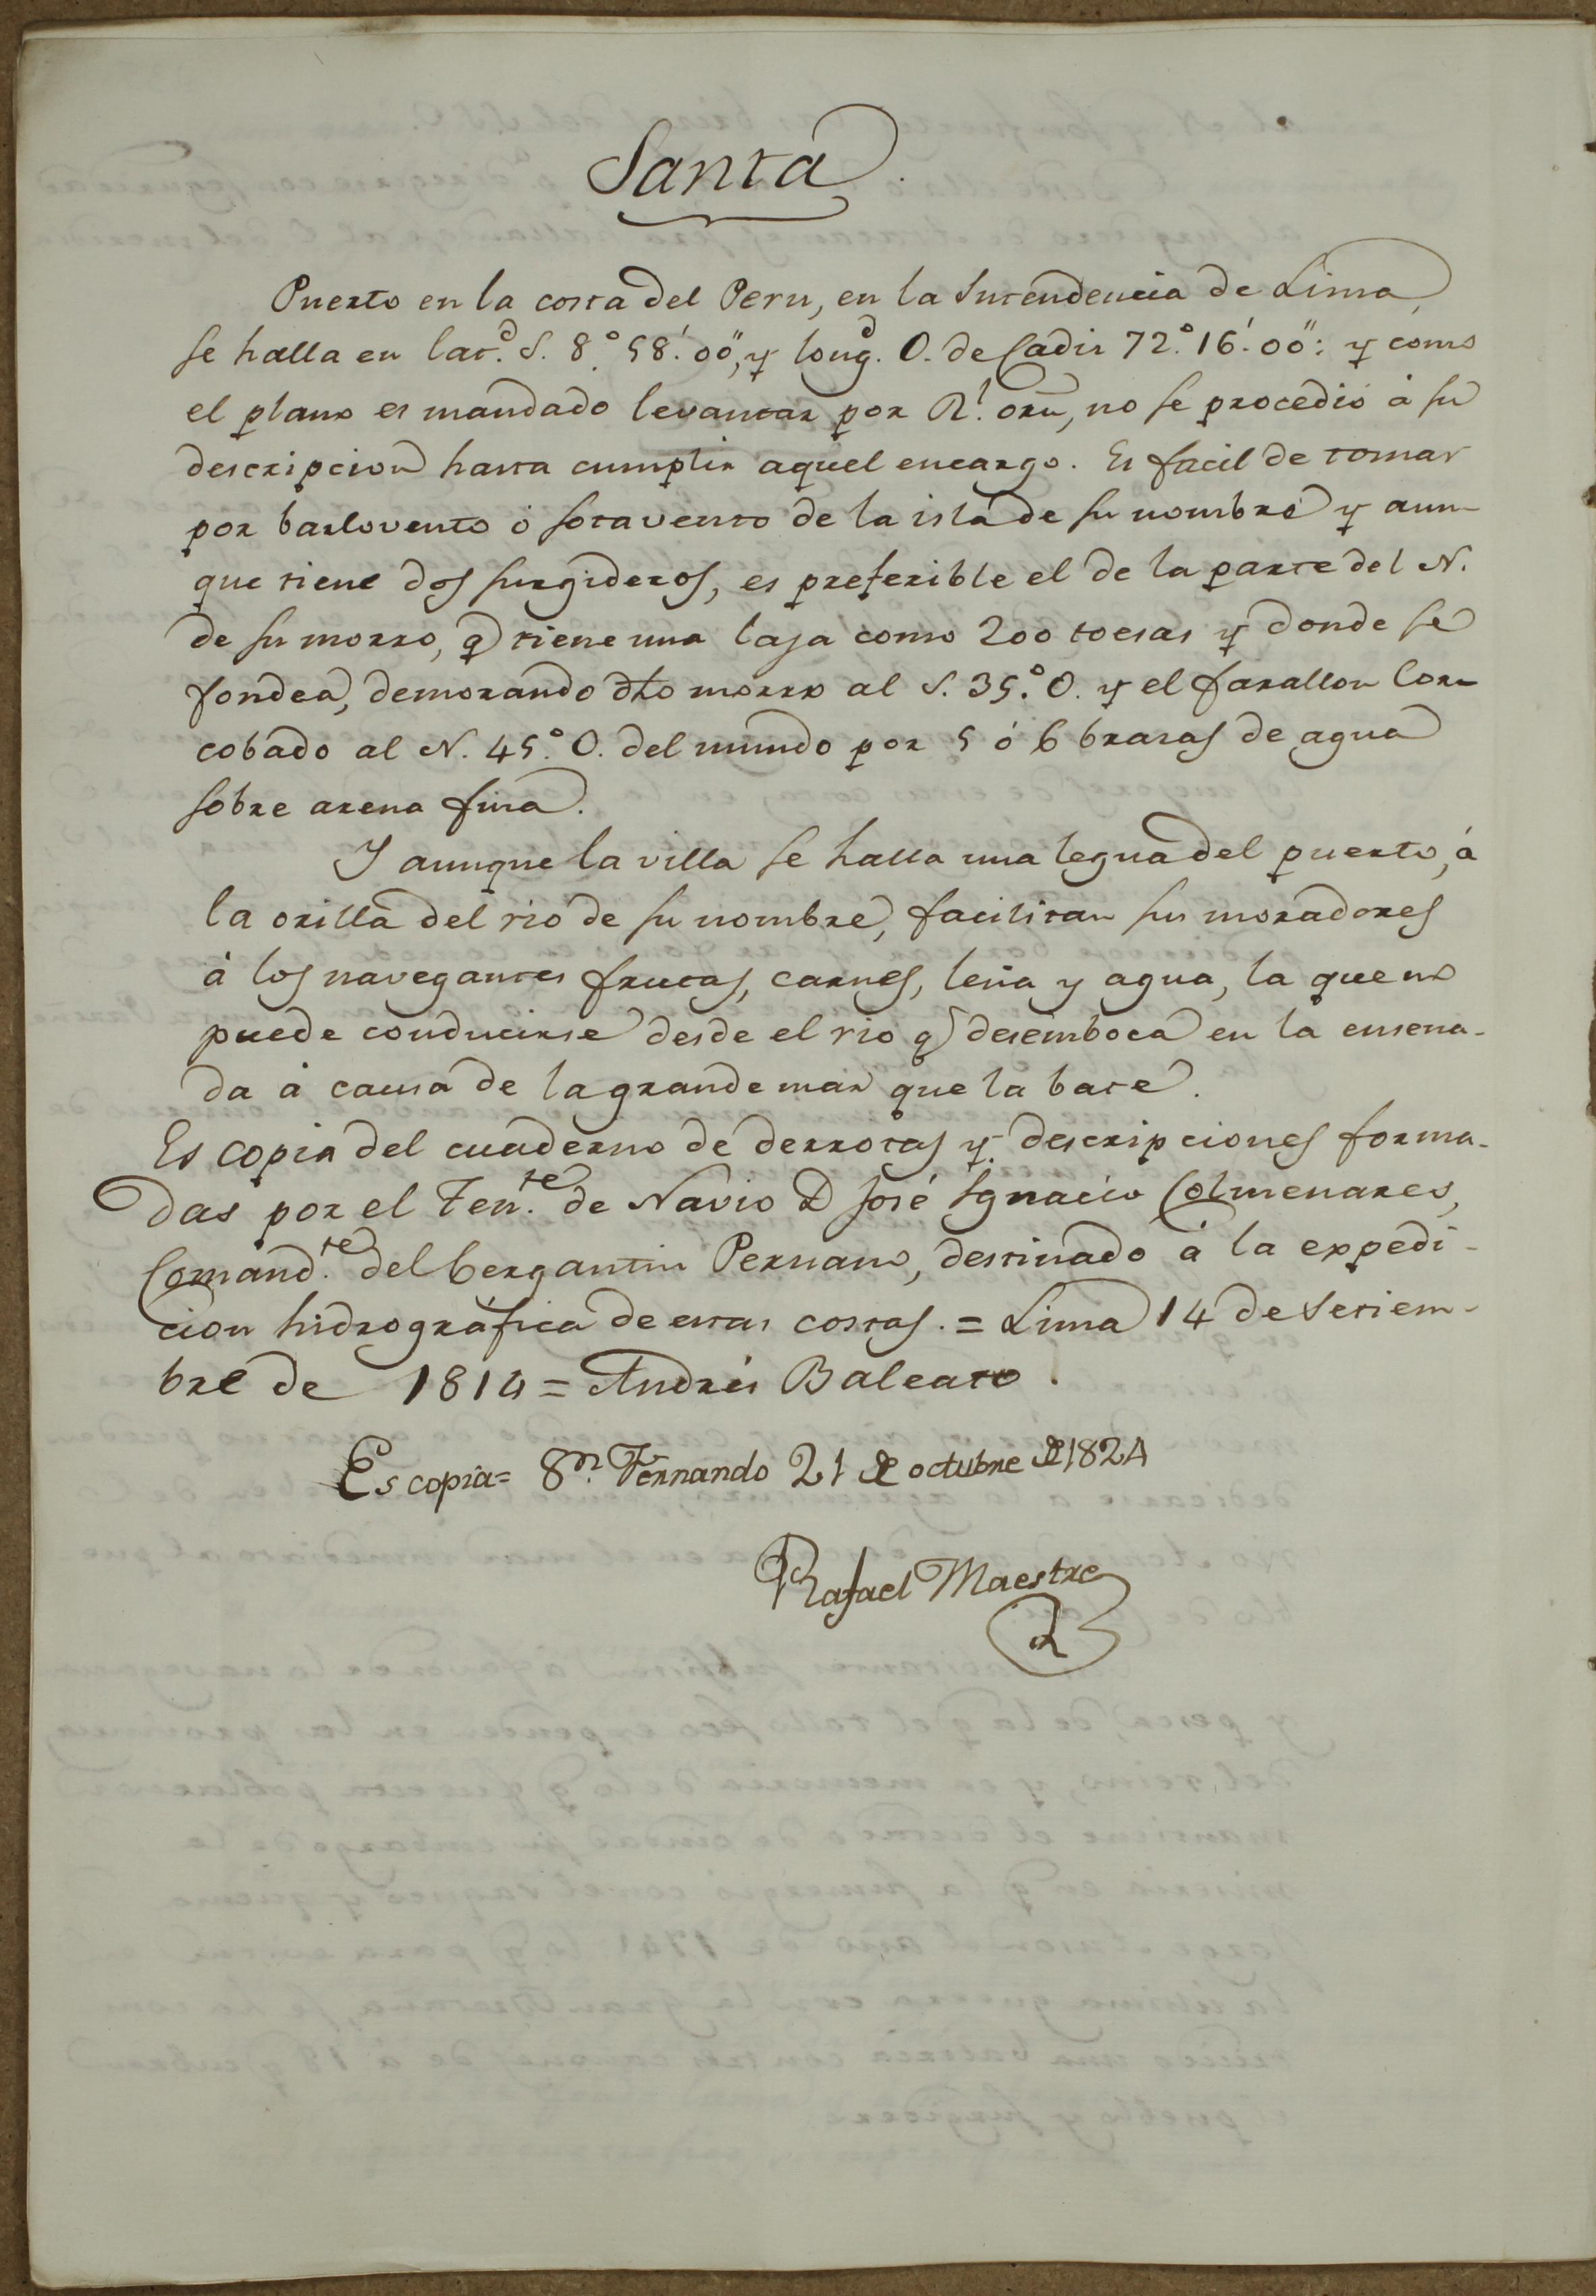 Santa.
Puerto en la costa del Peru, en la Intendencia de Lima,
se halla en lat.d S. 8.° 58.' 00", y long.d O. de Cadis 72.° 16.' 00": y como
el plano es mandado levantar por Rl. orn, no se procedió á su
descripcion hasta cumplir aquel encargo. Es facil de tomar
por barlovento ó sotavento de la isla de su nombre y aun-
que tiene dos surgideros, es preferible el de la parte del N.
de su morro, q tiene una laja como 200 toesas y donde se
fondea, demorando dho morro al S. 35.° O. y el farallon Cor-
cobado al N. 45.° O. del mundo por 5 ó 6 brazas de agua
sobre arena fina.
Y aunque la villa se halla una legua del puerto, á
la orilla del rio de su nombre, facilitan sus moradores
á los navegantes frutas, carnes, leña y agua, la que no
puede conducirse desde el rio q desemboca en la ensena-
da á causa de la grande mar que la bate.
Es copia del cuaderno de derrotas y descripciones forma-
das por el Ten.te de Navio D José Ignacio Colmenares,
Comand.te del bergantin Peruano, destinado á la expedi-
cion hidrográfica de estas costas. = Lima 14 de Setiem-
bre de 1814 = Andrés Baleato.
Es copia = Sn. Fernando 21 de octubre de 1824
Rafael Maestre